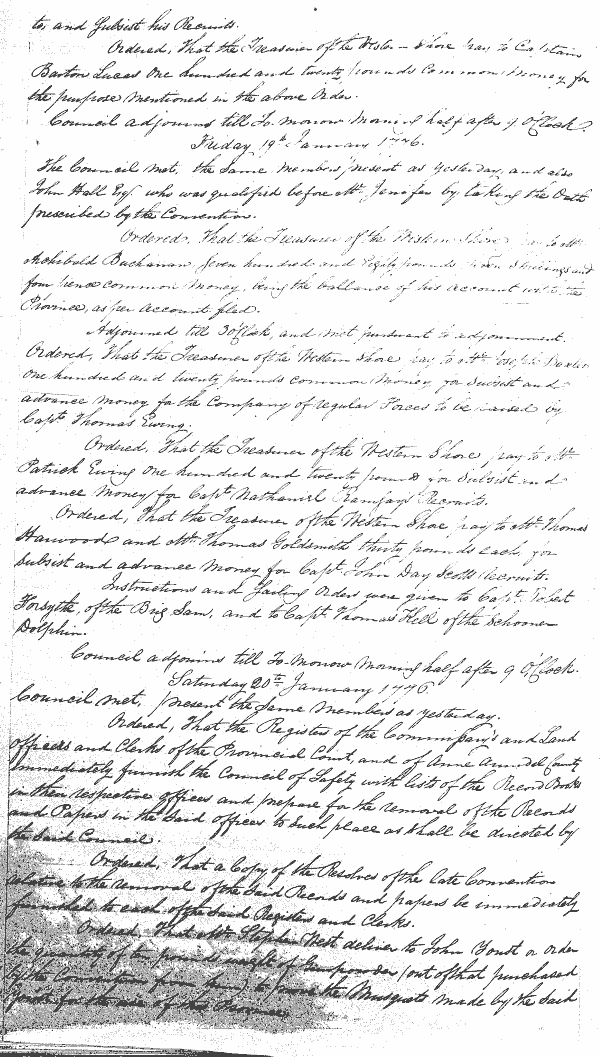 to, and Subsist his Recruits.
Ordered, That the Treasurer of the Western Shore pay to Captain
Barton Lucas One hundred and twenty pounds Common Money for
the purpose mentioned in the above Order.
Council adjourns till To-morrow Morning half after 9 O'Clock.
Friday 19th January 1776.
The Council met, the Same Members present as Yesterday, and also
John Hall Esqr who was qualified before Mr. Jenifer by taking the Oath
prescribed by the Convention.
Ordered, That the Treasurer of the Western Shore pay to Mr.
Archibald Buchanan, Seven hundred and Eighty pounds, Shillings and
four pence common Money, being the ballance of his Account with the
Province, as per Account filed.
Adjourned till 3 O'Clock, and met pursuant to adjournment.
Ordered, That the Treasurer of the Western Shore pay to Mr. Joseph Baxter
One hundred and twenty pounds common Money, for Subsist and
advance Money for the Company of regular Forces to be raised by
Capt. Thomas Ewing.
Ordered, That the Treasurer of the Western Shore pay to Mr.
Patrick Ewing One hundred and twenty pounds for Subsist and
advance Money for Capt. Nathaniel Recruits.
Ordered, That the Treasurer of the Western Shore pay to Mr. Thomas
Harwood and Mr. Thomas Goldsmith thirty pounds each, for
Subsist and advance Money for Capt. John Day Scotts Recruits.
Instructions and Sailing Orders were given to Capt. Robert
Forsythe, of the Brig Sam, and to Capt. Thomas Kell of the Schooner
Dolphin.
Council adjourns till To-Morrow Morning half after 9 O'Clock.
Saturday 20th January 1776.
Council met, present the Same Members as yesterday.
Ordered, That the Registers of the Commissary's and Land
offices and Clerks of the Provincial Court, and of Anne Arundel County
immediately furnish the Council of Safety with lists of the Record Books
in their respective offices and prepare for the removal of the Records
and Papers in the Said offices to Such place as shall be directed by
the Said Council.
Ordered, That a Copy of the Resolves of the late Convention
relative to the removal of the Said Records and papers be immediately
furnished to each of the Said Registers and Clerks.
Ordered, That Mr. Stephen West deliver to John Yoast or order
the quantity of ten pounds weight of Gun powder (out of that purchased
by the Convention from him) to prove the Musquets made by the Said
Yoast for the use of this Province.